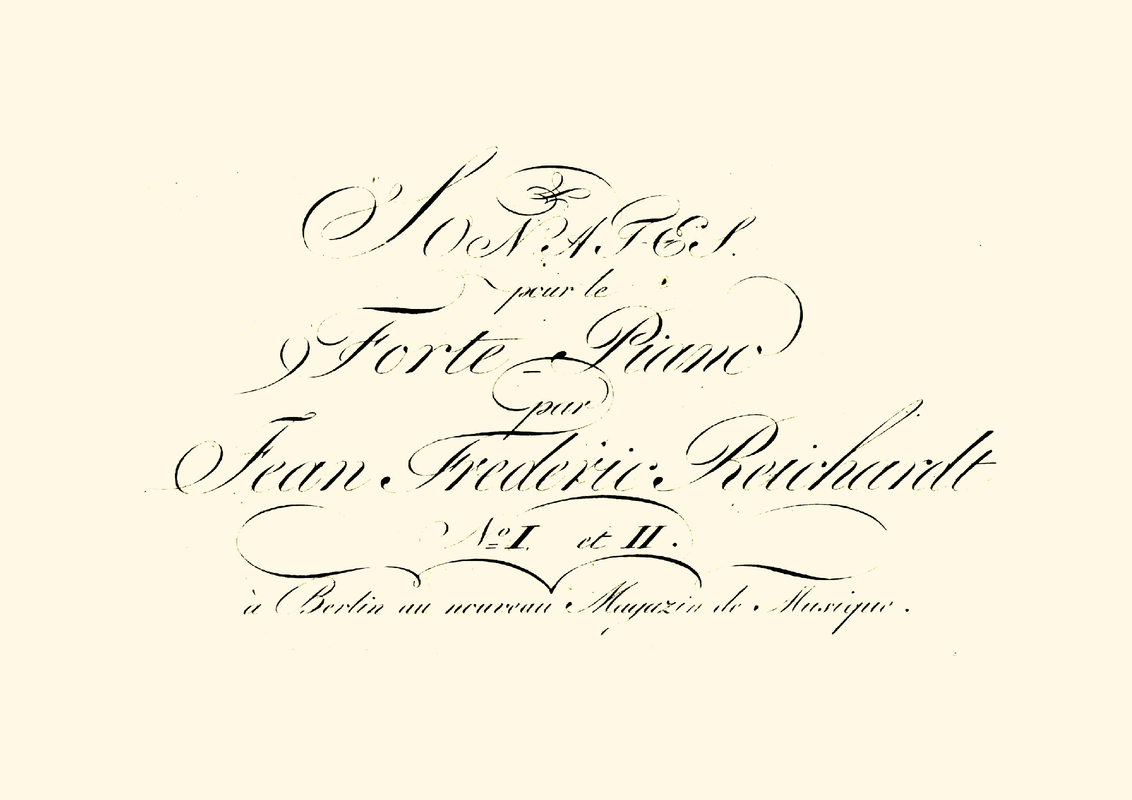 SONATES.
pour le
Forte-Piano
par
Jean Fréderic Reichardt
No I. et II.
à Berlin au nouveau Magazin de Musique.